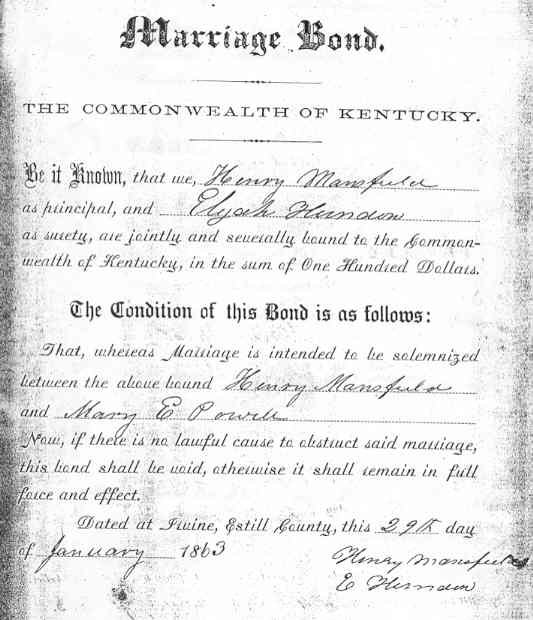 Marriage Bond.
THE COMMONWEALTH OF KENTUCKY.
Be it Known, that we, Henry Mansfield
as principal, and Elijah Herndon
as surety, are jointly and severally bound to the Common-
wealth of Kentucky, in the sum of One Hundred Dollars.
The Condition of this Bond is as follows:
That, whereas Marriage is intended to be solemnized
between the above bound Henry Mansfield
and Mary E Powell
Now, if there is no lawful cause to obstruct said marriage,
this bond shall be void, otherwise it shall remain in full
force and effect.
Dated at Irvine, Estill County, this 29th day
of January 1863
Henry Mansfield
E Herndon